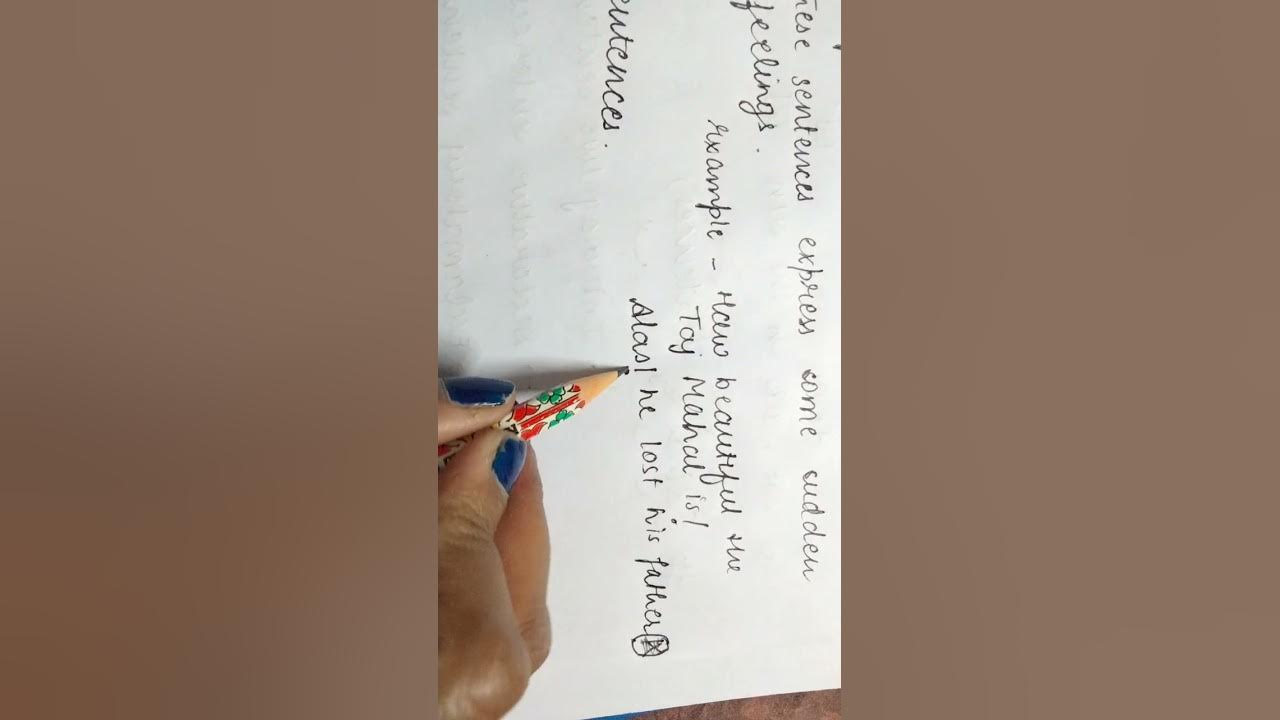 hese sentences express some sudden
feelings.
example - How beautiful the
Taj Mahal is!
Alas! he lost his father
entences.